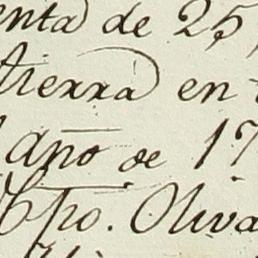 enta de 25
tierra en
año de 17
Xpo. Oliva